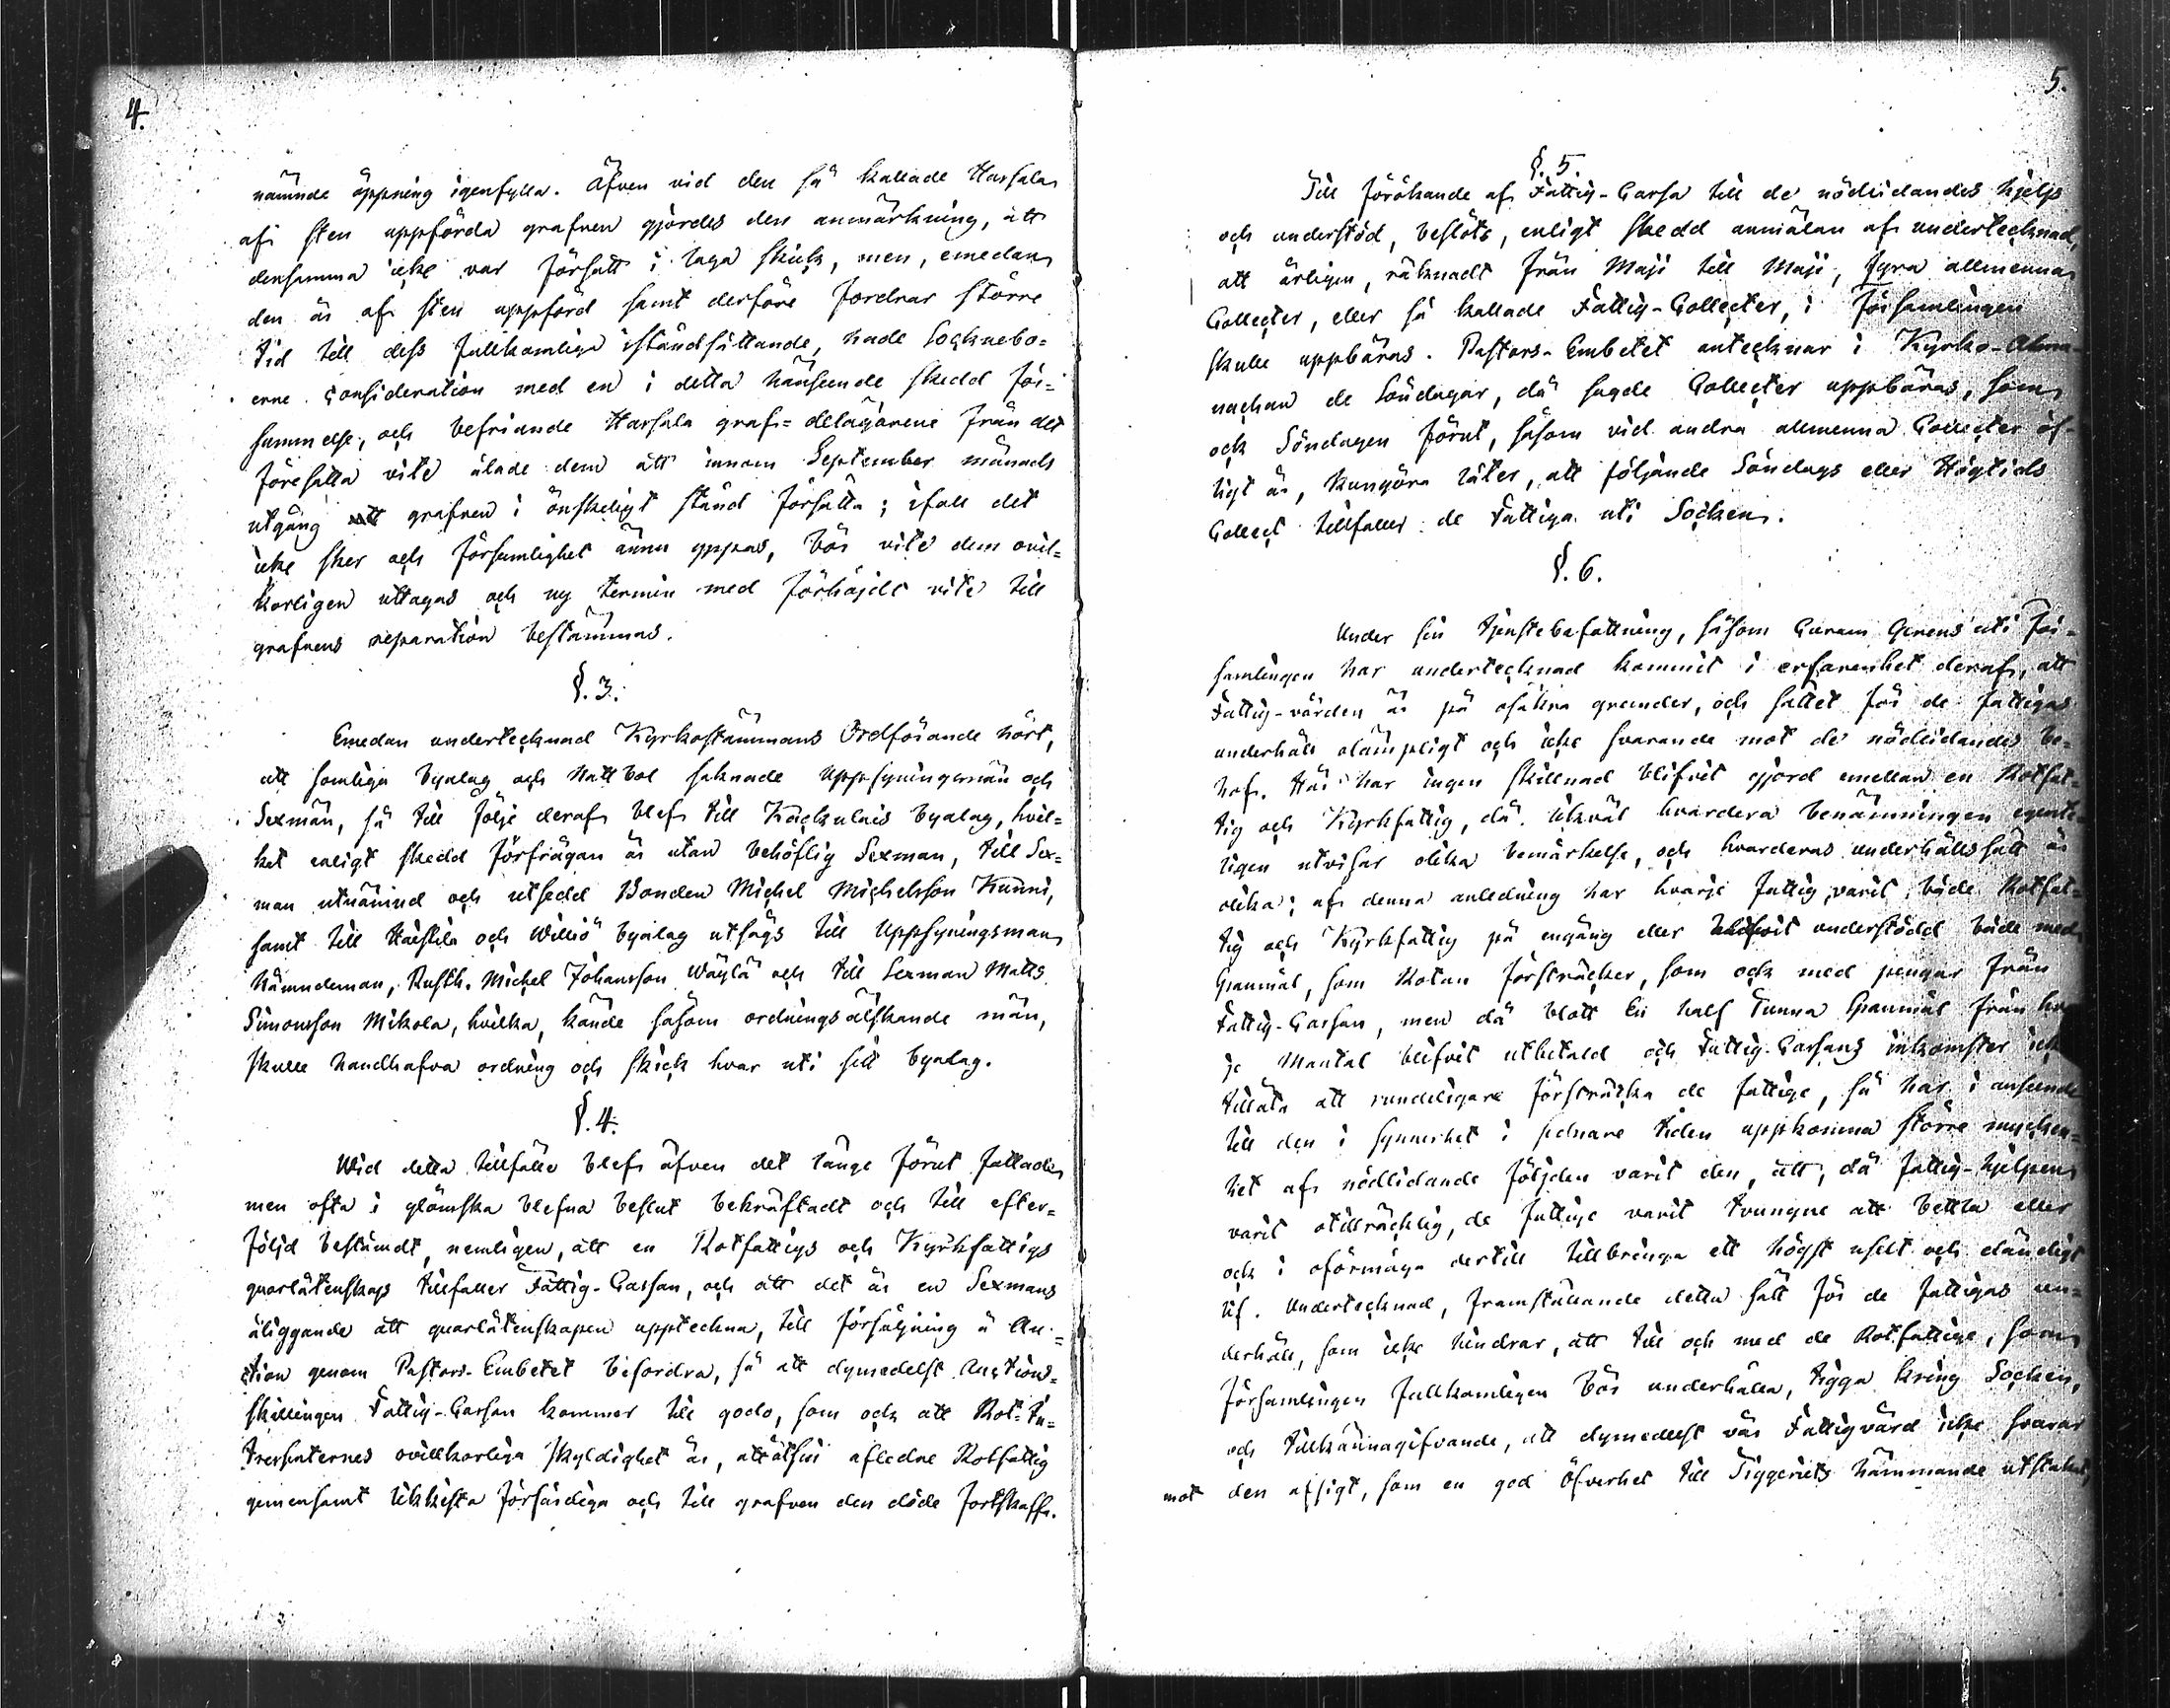 4.
nämnde öppning igenfylla. Äfven vid den så kallade Harsala
af sten uppförda grafven gjordes den anmärkning, att
densamma icke var försatt i laga skick, men, emedan
den är af sten uppförd samt derföre fordrar större
tid till dess fullkomliga iståndsättande, hade Socknebo=
erne consideration med en i detta hänseende skedd för=
summelse, och befriande Harsala graf=delägarene från det
föresatta vite ålade dem att innom September månads
utgång grafven i önskeligt stånd försätta; ifall det
icke sker och försumlighet ännu yppas, bör vite dem ovil=
korligen uttagas och ny termin med förhöjdt vite till
grafvens reparation bestämmas.
§. 3.
Emedan undertecknad Kyrkostämmans Ordförande hört,
att somliga byalag och saknade Uppsyningsmän och
Sexmän, så till följe deraf blef till byalag, hvil=
ket enligt skedd förfrågan är utan behöflig Sexman, till Sex=
man utnämnd och utsedd Bonden Michel Michelsson Kunni,
samt till Haistila och Williö byalag utsågs till Uppsyningsman
Nämndeman, Rusth. Michel Johansson Wäylä och till Sexman Matts
Simonsson Mikola, hvilka, kände såsom ordningsälskande män,
skulle handhafva ordning och skick hvar uti sitt byalag.
§. 4.
Wid detta tillfälle blef äfven det länge förut fattade
men ofta i glömska blefna beslut bekräftadt och till efter=
följd bestämdt, nemligen, att en Rotfattigs och Kyrkfattigs
qvarlåtenskap tillfaller Fattig-Cassan, och att det är en Sexmans
åliggande att qvarlåtenskapen uppteckna, till försäljning å Au=
ction genom Pastors-Embetet befordra, så att dymedelst Auctions=
skillingen Fattig-Cassan kommer till godo, som ock att Rot=In=
tressenternes ovillkorliga skyldighet är, att åt sin afledne Rotfattig
gemensamt likkista förfärdiga och till grafven den döde fortskaffa.
5.
§. 5.
Till förökande af Fattig-Cassa till de nödlidandes hjelp
och understöd, beslöts, enligt skedd anmälan af undertecknad,
att årligen, räknadt från Maji till Maji, fyra allmenna
Collecter, eller så kallade Fattig-Collecter, i Församlingen
skulle uppbäras. Pastors-Embetet antecknar i Kyrko-Alma-
nachan de Söndagar, då sagde Collecter uppbäras, som
ock Söndagen förut, såsom vid andra allmenna Collecter öf-
ligt är, kungöra låter, att följande Söndags eller Högtids
Collect tillfaller de Fattiga uti Socken.
§. 6.
Under sin tjenstebefattning, såsom Curam Gerens uti För=
samlingen har undertecknad kommit i erfarenhet deraf, att
Fattig-vården är på osäkra grunder, och sättet för de fattigas
underhåll olämpligt och icke svarande mot de nödlidandes be=
hof. Här har ingen skillnad blifvit gjord emellan en Rotfat=
tig och Kyrkfattig, då likväl hvardera benämningen egent=
ligen utvisar olika bemärkelse, och hvarderas underhållssätt är
olika; af denna anledning har hvarje fattig varit både Rotfat=
tig och Kyrkfattig på engång eller blifvit understödd både med
Spanmål, som Rotan försträcker, som ock med pengar från
Fattig-Cassan, men då blott En half Tunna Spanmål från hvar
je Mantal blifvit utbetald och Fattig-Cassans inkomster icke
tillåta att rundeligare försträcka de fattige, så har i anseende
till den i synnerhet i sednare tiden uppkomna större mycken=
het af nödlidande följden varit den, att, då fattig-hjelpen
varit otillräcklig, de fattige varit tvungne att bettla eller
ock i oförmåga dertill tillbringa ett högst uselt och eländigt
lif. Undertecknad, framställande detta sätt för de fattigas un=
derhåll, som icke hindrar, att till och med de Rotfattige, som
församlingen fullkomligen bör underhålla, tigga kring Socken,
och tillkännagifvande, att dymedelst vår Fattigvård icke svarar
mot den afsigt, som en god Öfverhet till Tiggeriets hämmande utstakat,